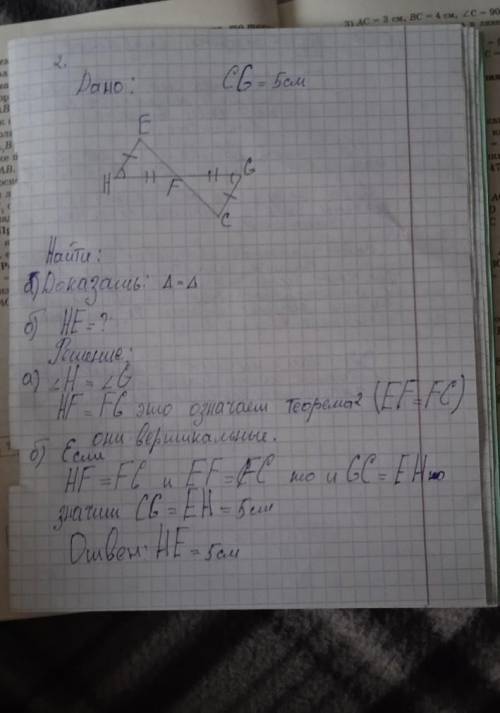 3) AC = 3 см, BC = 4 см, ∠C = 90
2.
Дано: CG = 5см
E
H F G
C
Найти:
а) Доказать: Δ = Δ
б) HE = ?
Решение:
а) ∠H = ∠G
HF = FG это означает теорема2 (EF = FC)
они вертикальные.
б) Если
HF = FG и EF = FC то и GC = EH но
значит CG = EH = 5см
Ответ: HE = 5см